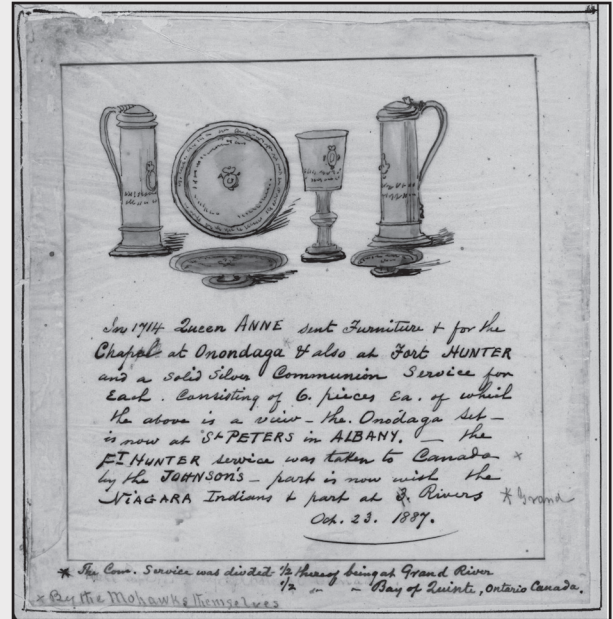 In 1714 Queen ANNE sent Furniture & for the
Chapel at Onondaga & also at Fort HUNTER
and a Solid Silver Communion Service for
Each. Consisting of 6. pieces Ea. of which
the above is a view - the Onodaga Set -
is now at St PETERS in ALBANY. - the
FT HUNTER service was taken to Canada *
by the JOHNSON'S - part is now with the
NIAGARA Indians & part at 3. Rivers * Grand
Oct. 23. 1887.
* The Com. Service was divided 1/2 thereof being at Grand River
1/2 " " Bay of Quinte, Ontario Canada.
* By the Mohawks themselves